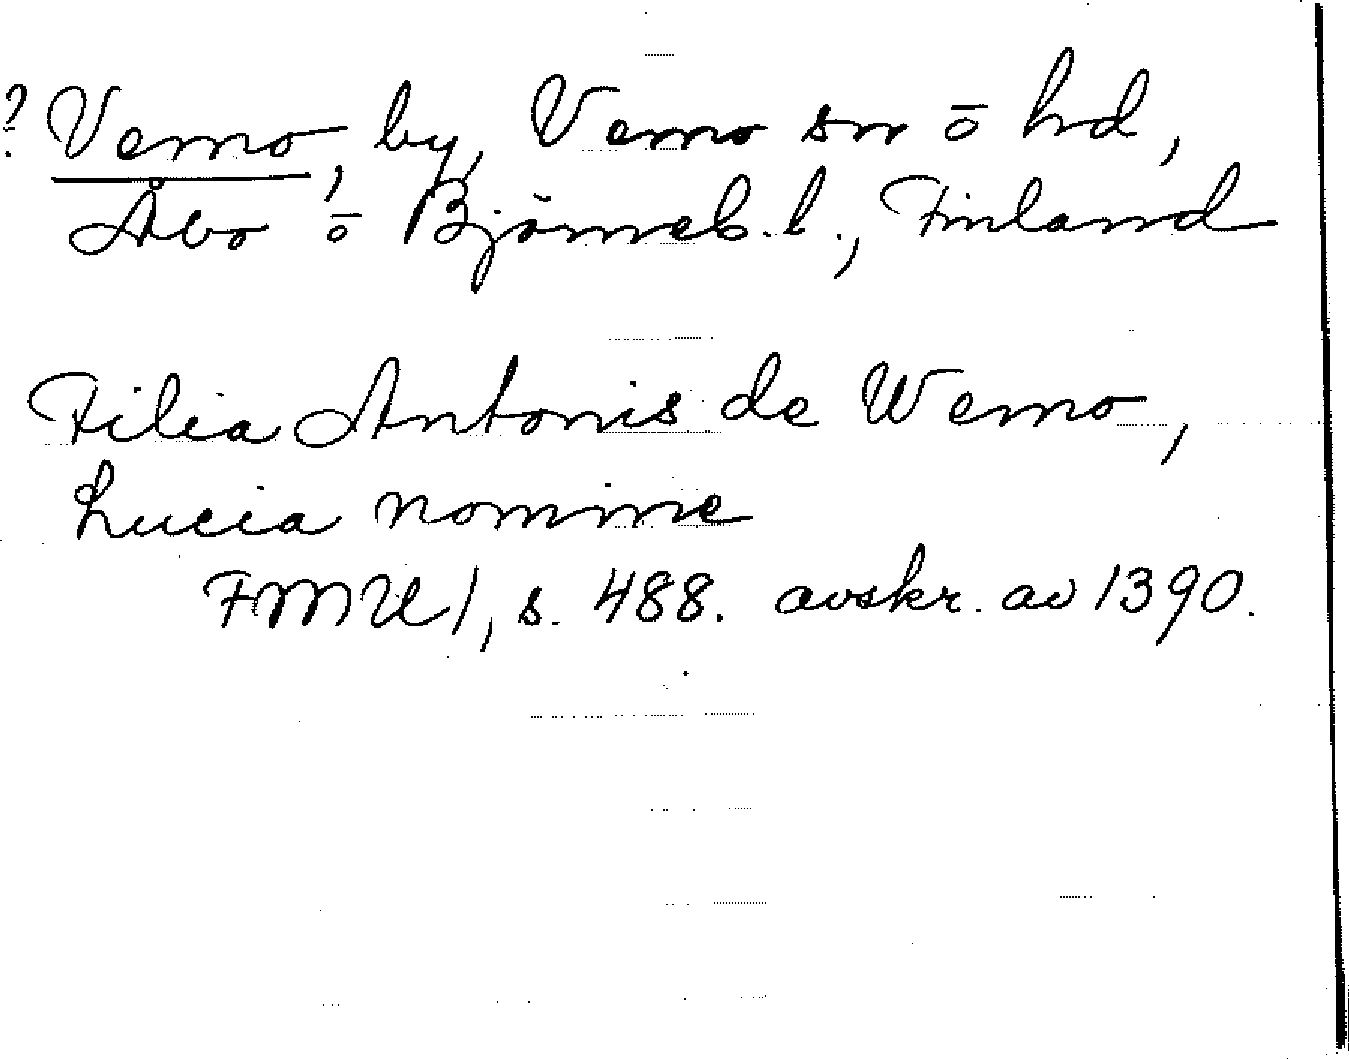 ? Vemo, by, Vemo sn ō hd,
Åbo ō Björneb. l., Finland
Filia Antonis de Wemo,
Lucia nomine
FMU 1, s. 488. avskr. av 1390.